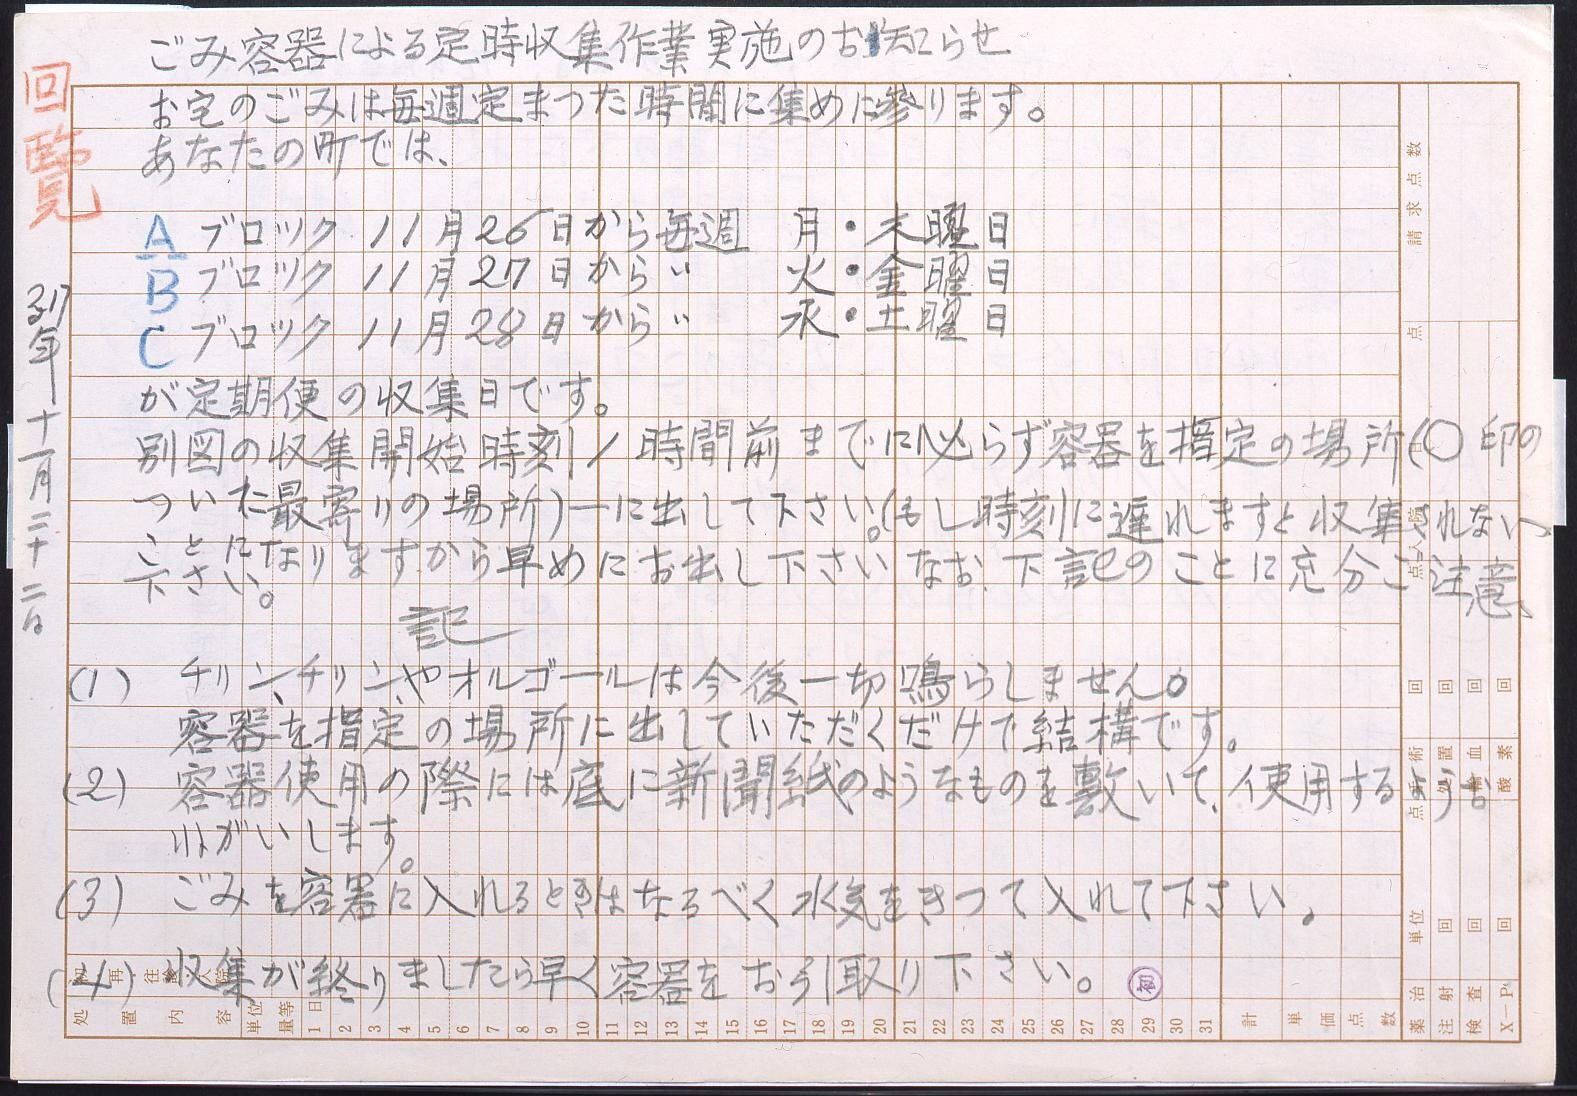 回覧
ごみ容器による定時収集作業実施のお知らせ
お宅のごみは毎週定まつた時間に集めに参ります。
あなたの町では、
A ブロック 11月26日から毎週 月・木曜日
B ブロック 11月27日から〃 火・金曜日
C ブロック 11月28日から〃 水・土曜日
が定期便の収集日です。
別図の収集開始時刻1時間前までに必らず容器を指定の場所(〇印の
ついた最寄りの場所)に出して下さい。(もし時刻に遅れますと収集されない
ことになりますから早めにお出し下さい なお、下記のことに充分ご注意
下さい。
記
(1) チリン、チリン、やオルゴールは今後一切鳴らしません。
容器を指定の場所に出していただくだけで結構です。
(2) 容器使用の際には底に新聞紙のようなものを敷いて、使用するよう
ねがいします。
(3) ごみを容器に入れるときはなるべく水気をきつて入れて下さい。
(4) 収集が終りましたら早く容器をお引取り下さい。
初
年十一月二十二日
処置内容 単位量等 1日 2 3 4 5 6 7 8 9 10 11 12 13 14 15 16 17 18 19 20 21 22 23 24 25 26 27 28 29 30 31 計 単価 点数
請求点数
点
回 回 回 回
手術 処置 輸血 酸素
点
単位 回 回 回
薬治 注射 検査 X－P